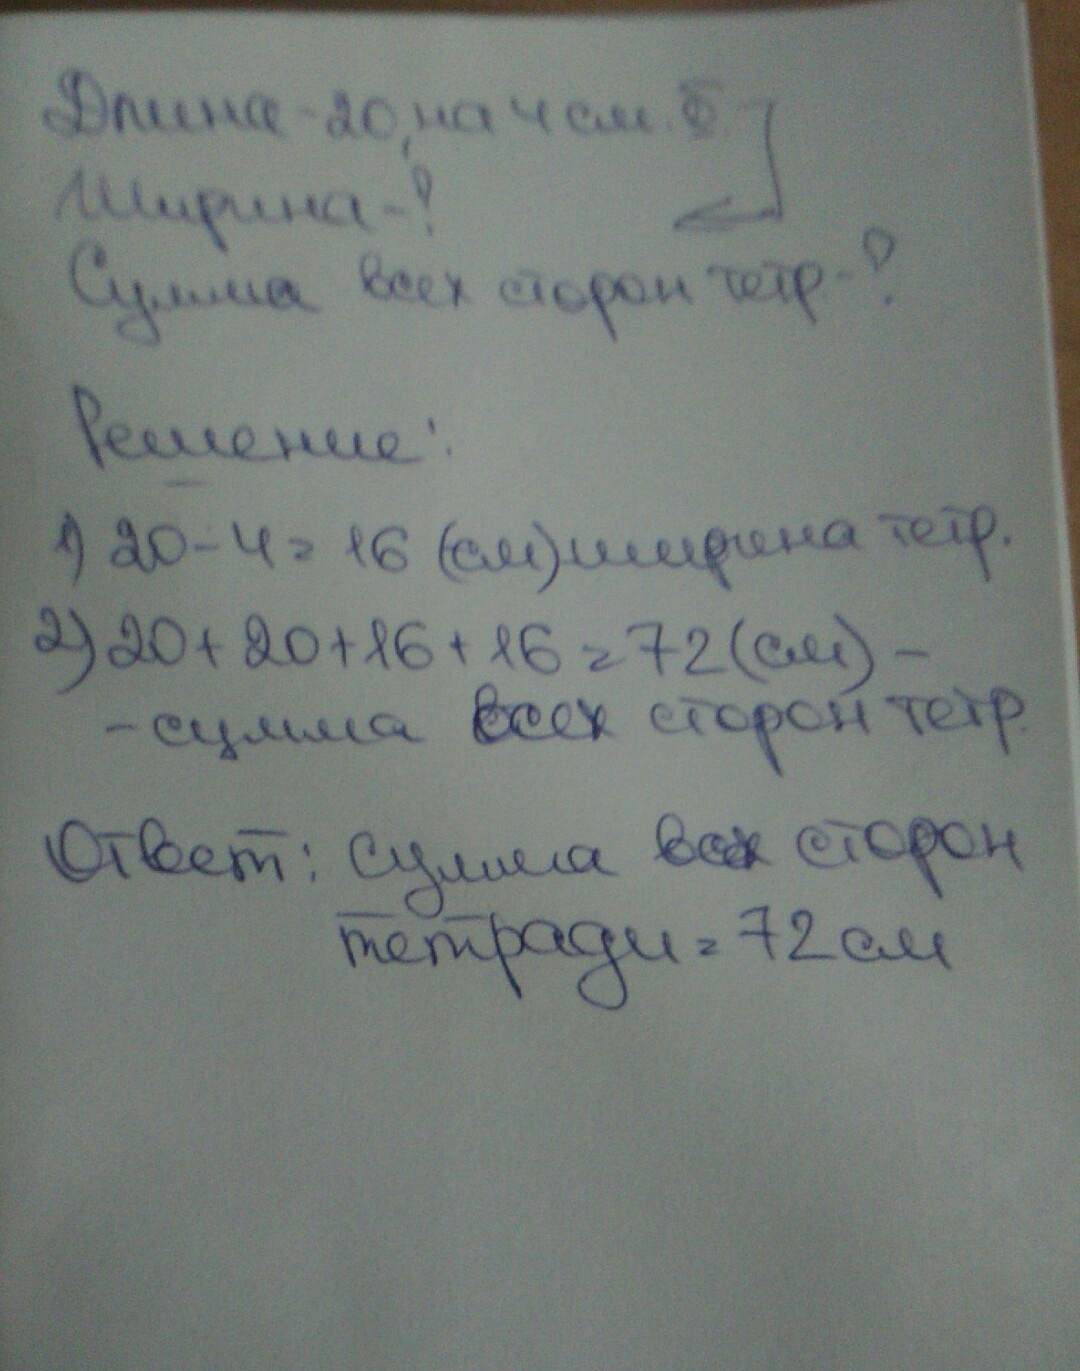 Длина - 20, на 4 см. б
Ширина - ?
Сумма всех сторон тетр. - ?
Решение:
1) 20 - 4 = 16 (см) ширина тетр.
2) 20 + 20 + 16 + 16 = 72 (см) -
- сумма всех сторон тетр.
Ответ: сумма всех сторон
тетради = 72 см